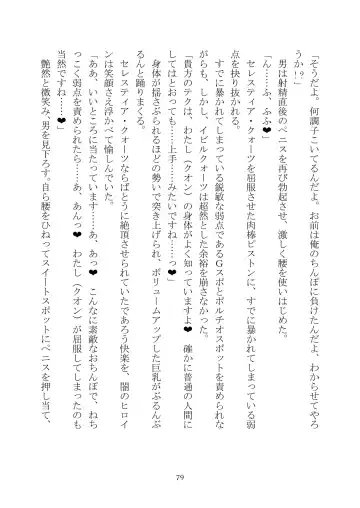 「そうだよ。何調子こいてるんだよ。お前は俺のちんぽに負けたんだよ、わからせてやろ
うか!」
　男は射精直後のペニスを再び勃起させ、激しく腰を使いはじめた。
「ん……ふ、ふふ♥」
　セレスティア・クォーツを屈服させた肉棒ピストンに、すでに暴かれてしまっている弱
点を抉り抜かれる。
　すでに暴かれてしまっている鋭敏な弱点であるＧスポとポルチオスポットを責められな
がらも、しかし、イビルクォーツは超然とした余裕を崩さなかった。
「貴方のテクは、わたし（クオン）の身体がよく知っていますよ♥　確かに普通の人間に
してはとおっても……上手……みたいですね……っ♥」
　身体が揺さぶられるほどの勢いで突き上げられ、ボリュームアップした巨乳がぶるんぶ
るんと踊りまくる。
　セレスティア・クォーツならばとうに絶頂させられていたであろう快楽を、闇のヒロイ
ンは笑顔さえ浮かべて愉しんでいた。
「ああ、いいところに当たっています……あ、あっ♥　こんなに素敵なおちんぽで、ねち
っこく弱点を責められたら……あ、あんっ♥　わたし（クオン）が屈服してしまったのも
当然ですね……♥」
　艶然と微笑み、男を見下ろす。自ら腰をひねってスイートスポットにペニスを押し当て、
79